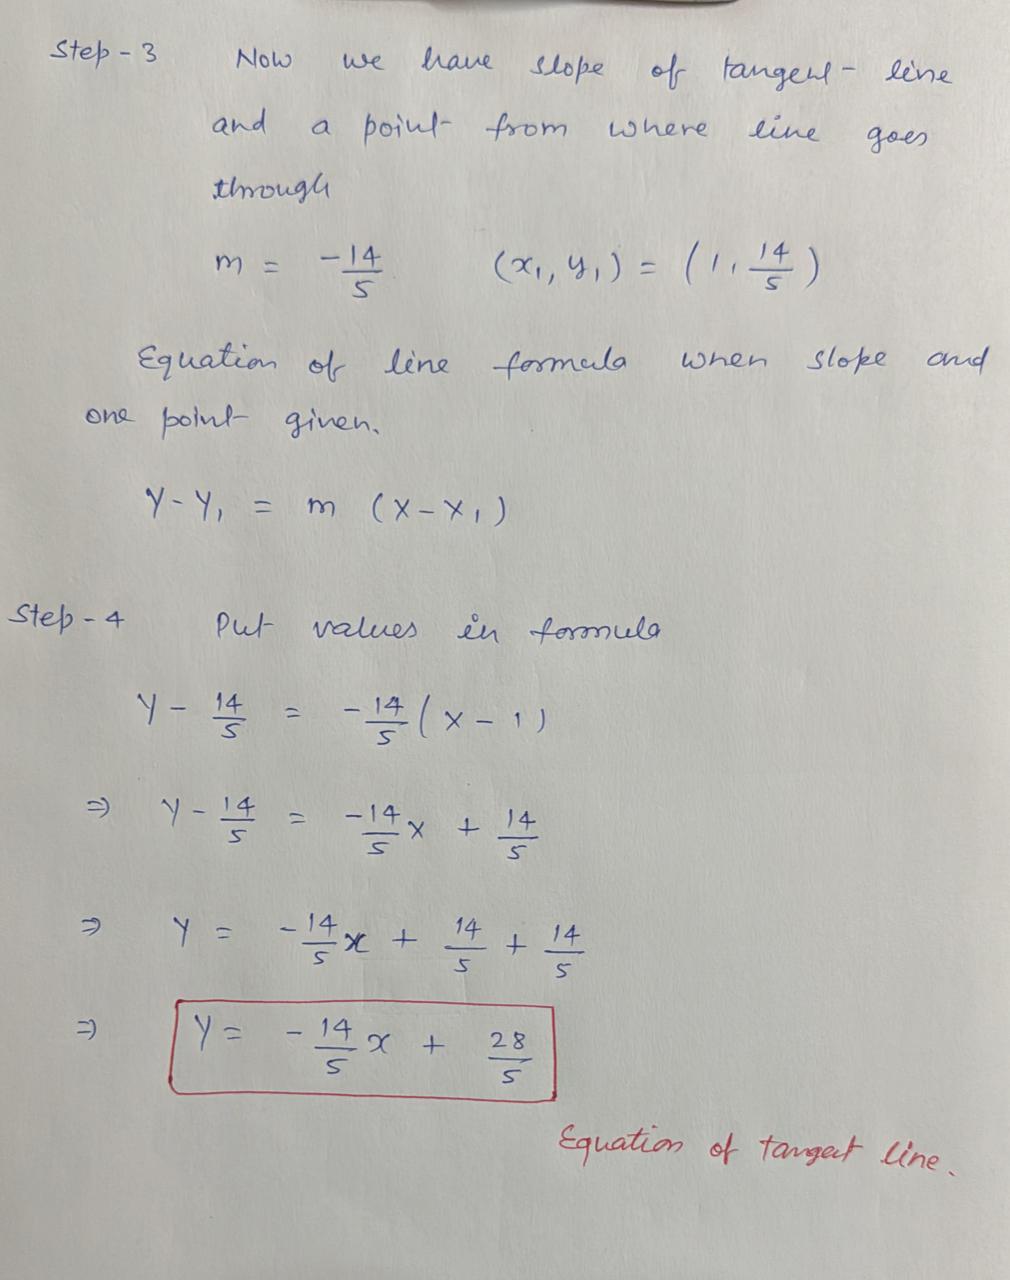 Step - 3 Now we have slope of tangent line
and a point from where line goes
through
m = -14/5 (x₁, y₁) = (1, 14/5)
Equation of line formula when slope and
one point given.
Y - Y₁ = m (X - X₁)
Step - 4 Put values in formula
Y - 14/5 = -14/5 (X - 1)
⇒ Y - 14/5 = -14/5 X + 14/5
⇒ Y = -14/5 x + 14/5 + 14/5
⇒ Y = -14/5 x + 28/5
Equation of tangent line.